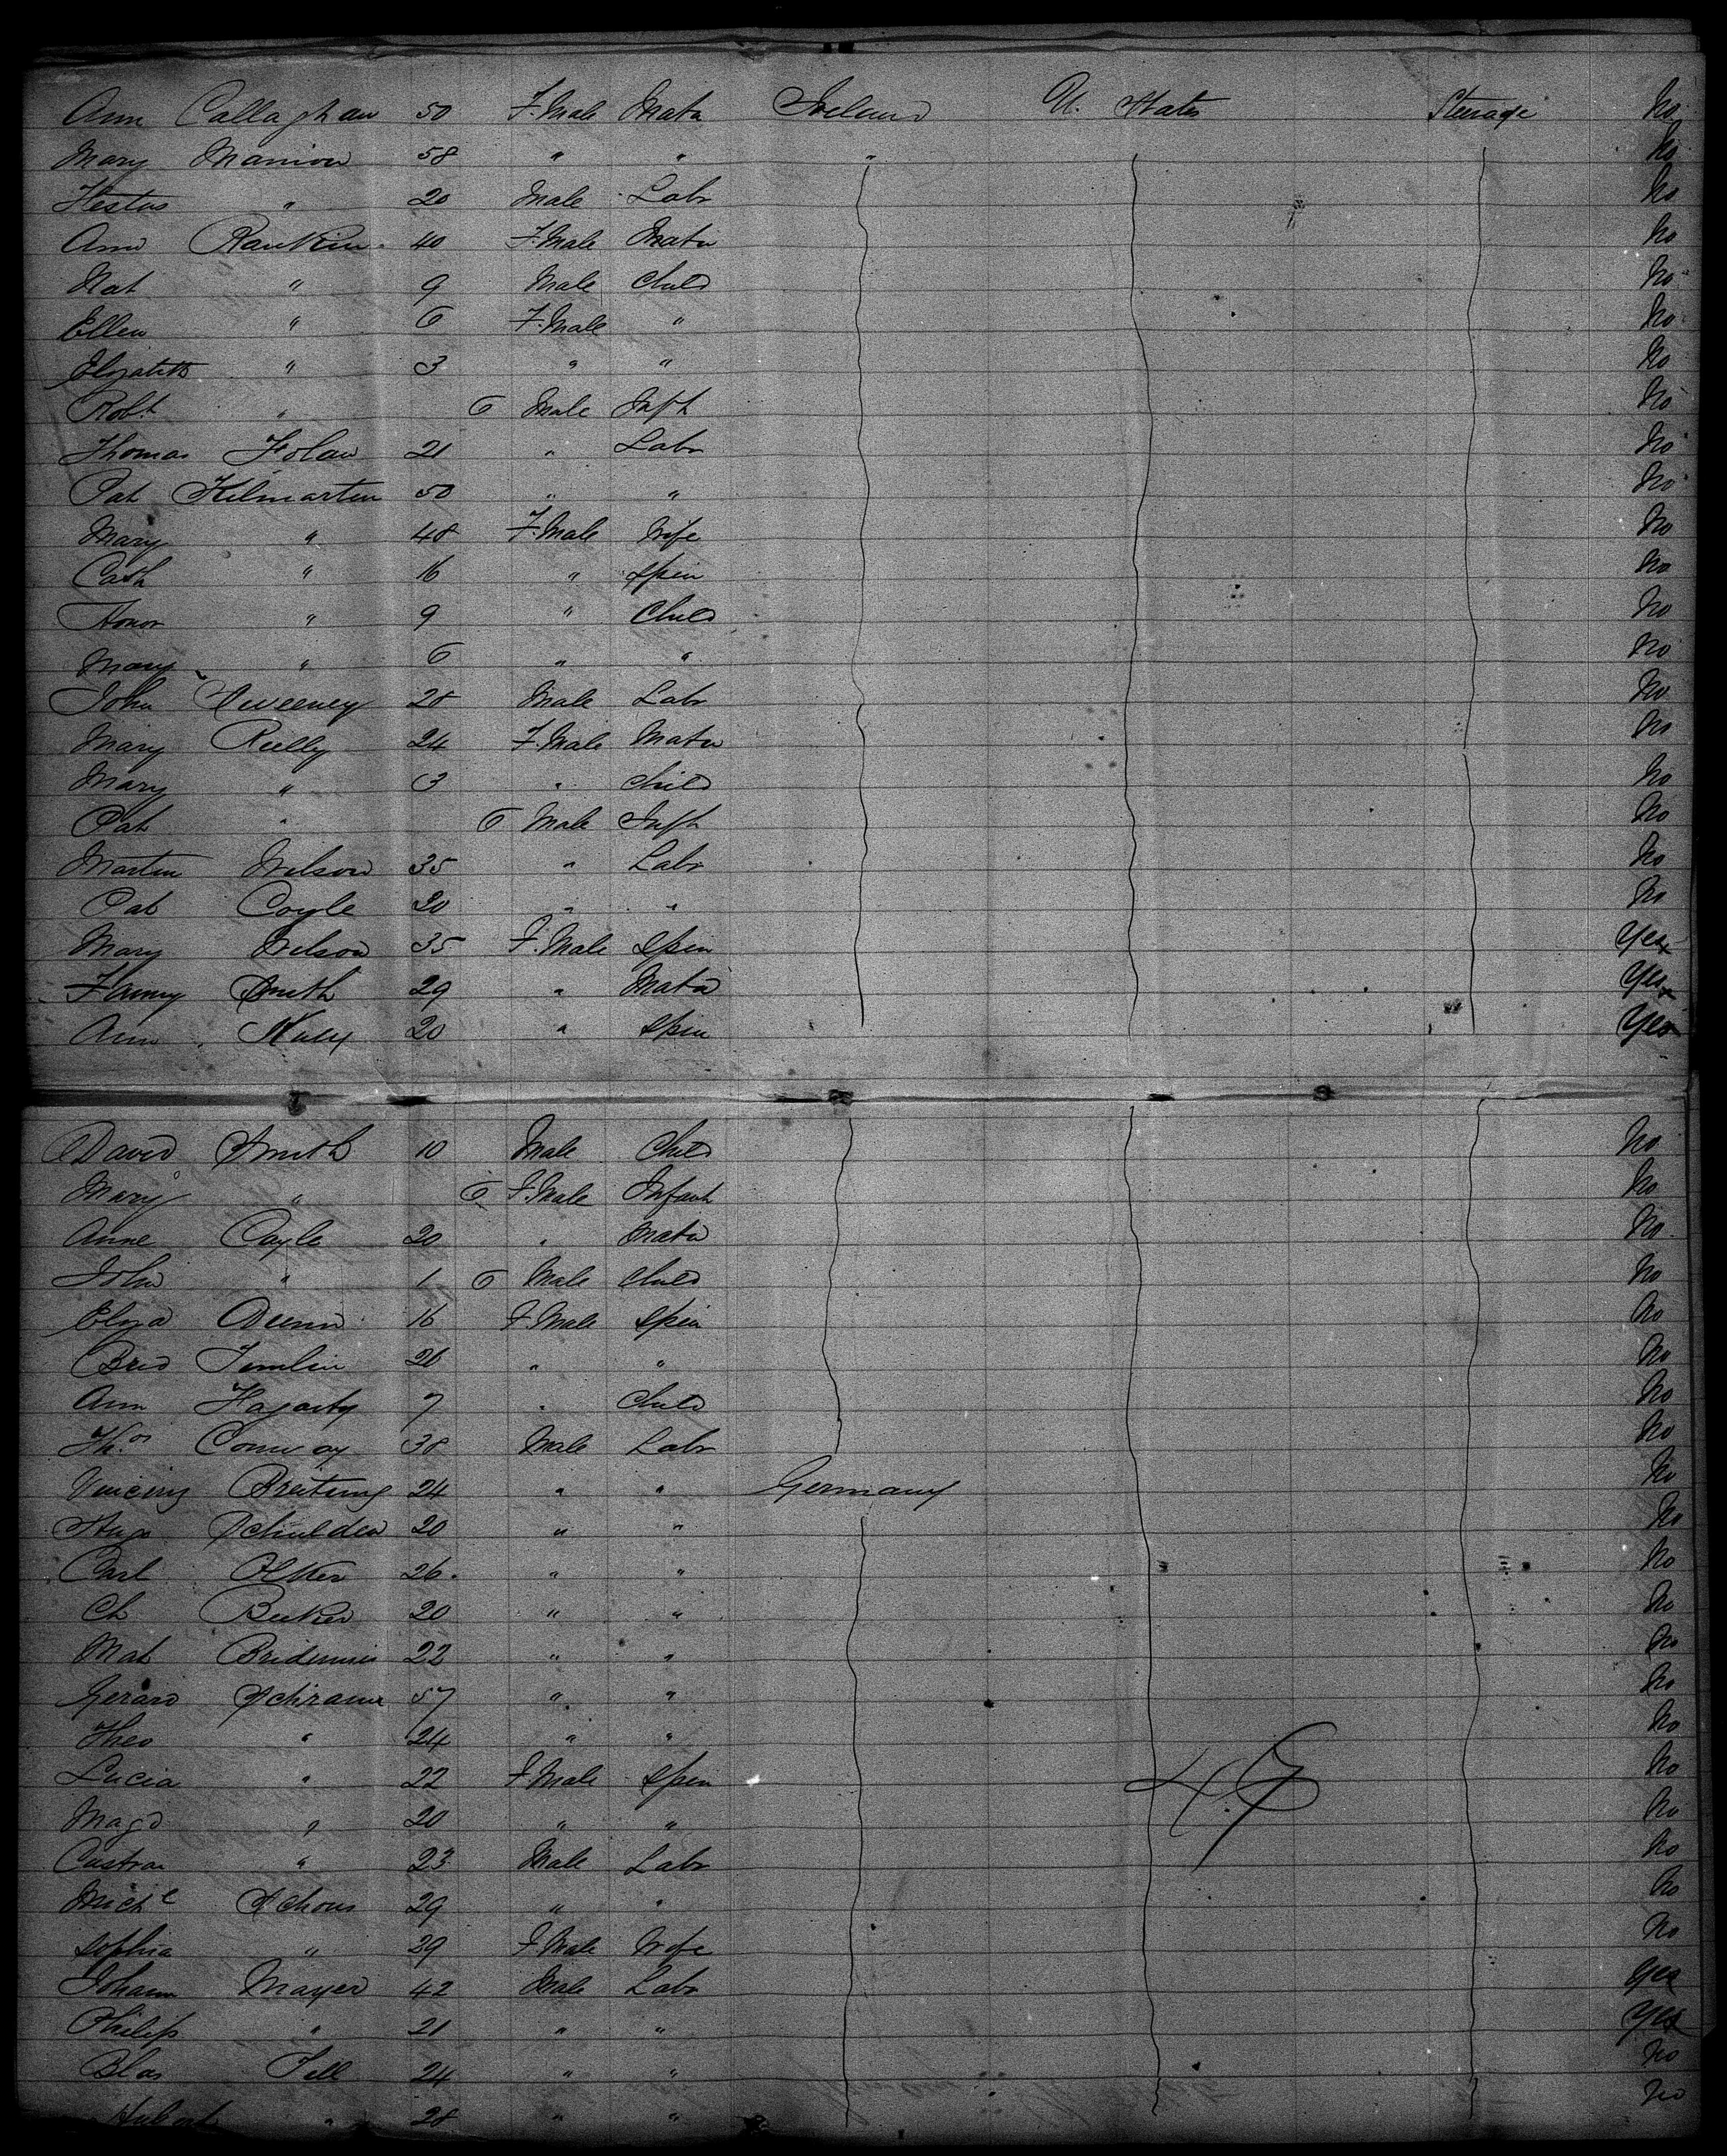 Ann Callaghan 50 F.Male Matn Ireland U. States Steerage No
Mary Mannion 58 " " " No
Festus " 20 Male Labr No
Ann Rankin 40 F.Male Matn No
Nat " 9 Male Child No
Ellen " 6 F.Male " No
Elizabeth " 3 " " No
Robt " 6 Male Inft No
Thomas Folan 21 " Labr No
Pat Kilmartin 50 " " No
Mary " 48 F.Male Wife No
Cath " 16 " Spin No
Honor " 9 " Child No
Mary " 6 " " No
John Sweeney 28 Male Labr No
Mary Reilly 24 F.Male Matn No
Mary " 3 " Child No
Pat " 6 Male Inft No
Martin Wilson 35 " Labr No
Pat Coyle 20 " " No
Mary Wilson 35 F.Male Spin Yes
Fanny Smith 29 " Matn Yes
Ann 20 " Spin Yes
David Smith 10 Male Child No
Mary " 6 F.Male Infant No
Anne Coyle 20 " Matn No
John " 1 6 Male Child No
Eliza Dunn 16 F.Male Spin No
Brid Timlin 20 " " No
Ann Hagarty 7 " Child No
Thos Conway 38 Male Labr No
Breitung 24 " " Germany No
Hugo 20 " " No
Carl 26 " " No
Ch Becker 20 " " No
Mat 22 " " No
Gerard Schramm 57 " " No
Theo " 24 " " No
Lucia " 22 F.Male Spin No
Magd " 20 " " No
" 23 Male Labr No
Michl Schons 29 " " No
Sophia " 29 F.Male Wife No
Johann Mayer 42 Male Labr Yes
Philip " 21 " " Yes
Blas Fell 24 " " No
Hubert " 28 " " No